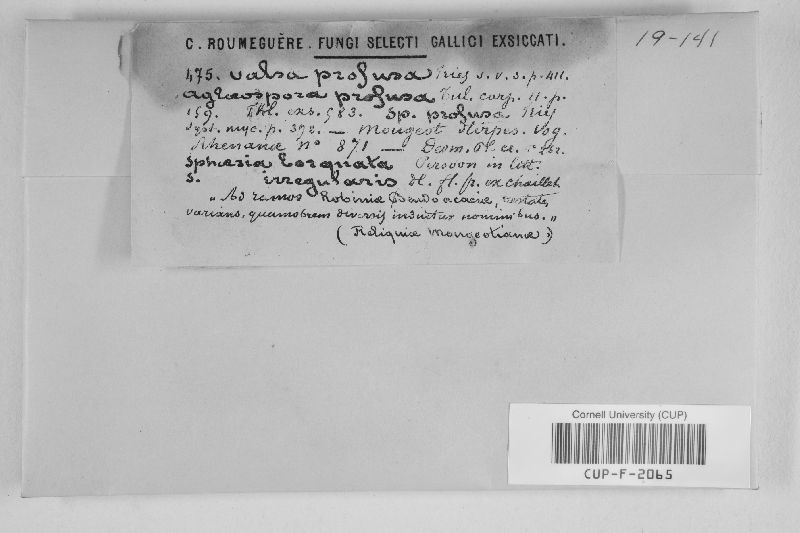 C. ROUMEGUÈRE. FUNGI SELECTI GALLICI EXSICCATI.
19-141
475. Valsa profusa Fries S. v. S. p. 411.
Aglaospora profusa Tul. carp. II. p.
159. Fkl. exs. 583. Sp. profusa Fries
Syst. myc. p. 392. — Mougeot Stirpes. Vog.
Rhenanæ n° 871 — Desm. Pl. cr.
Sphæria torquata Persoon in litt.
S. irregularis DC. fl. fr. ex Chaillet
„ Ad ramos Robiniæ Pseudo acaciæ, ætate,
varians, quamobrem diversis induitur nominibus. „
( Reliquiæ Mougeotianæ )
Cornell University (CUP)
CUP-F-2065